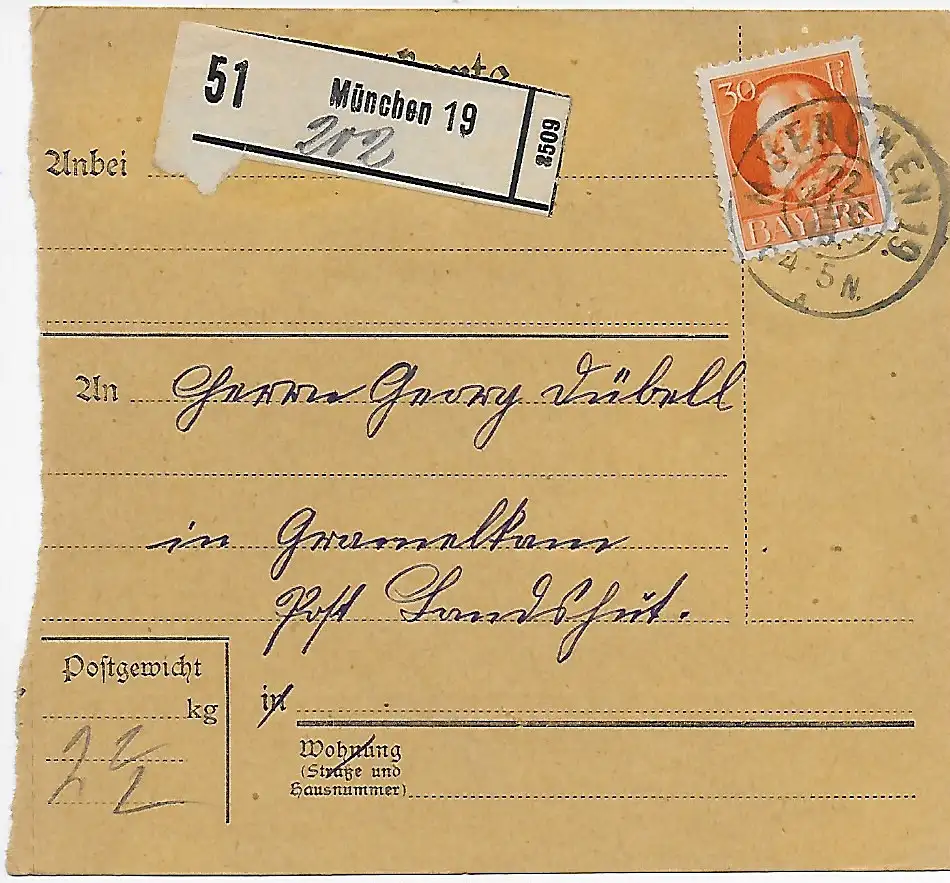 51 München 19 8509
202
30 Pf
BAYERN
MUENCHEN 19.
22
4-5 N.
Anbei
An Herrn Georg Dübell
in Gramelkam
Post Landshut.
Postgewicht
kg
2 1/2
in
Wohnung
(Straße und
Hausnummer)